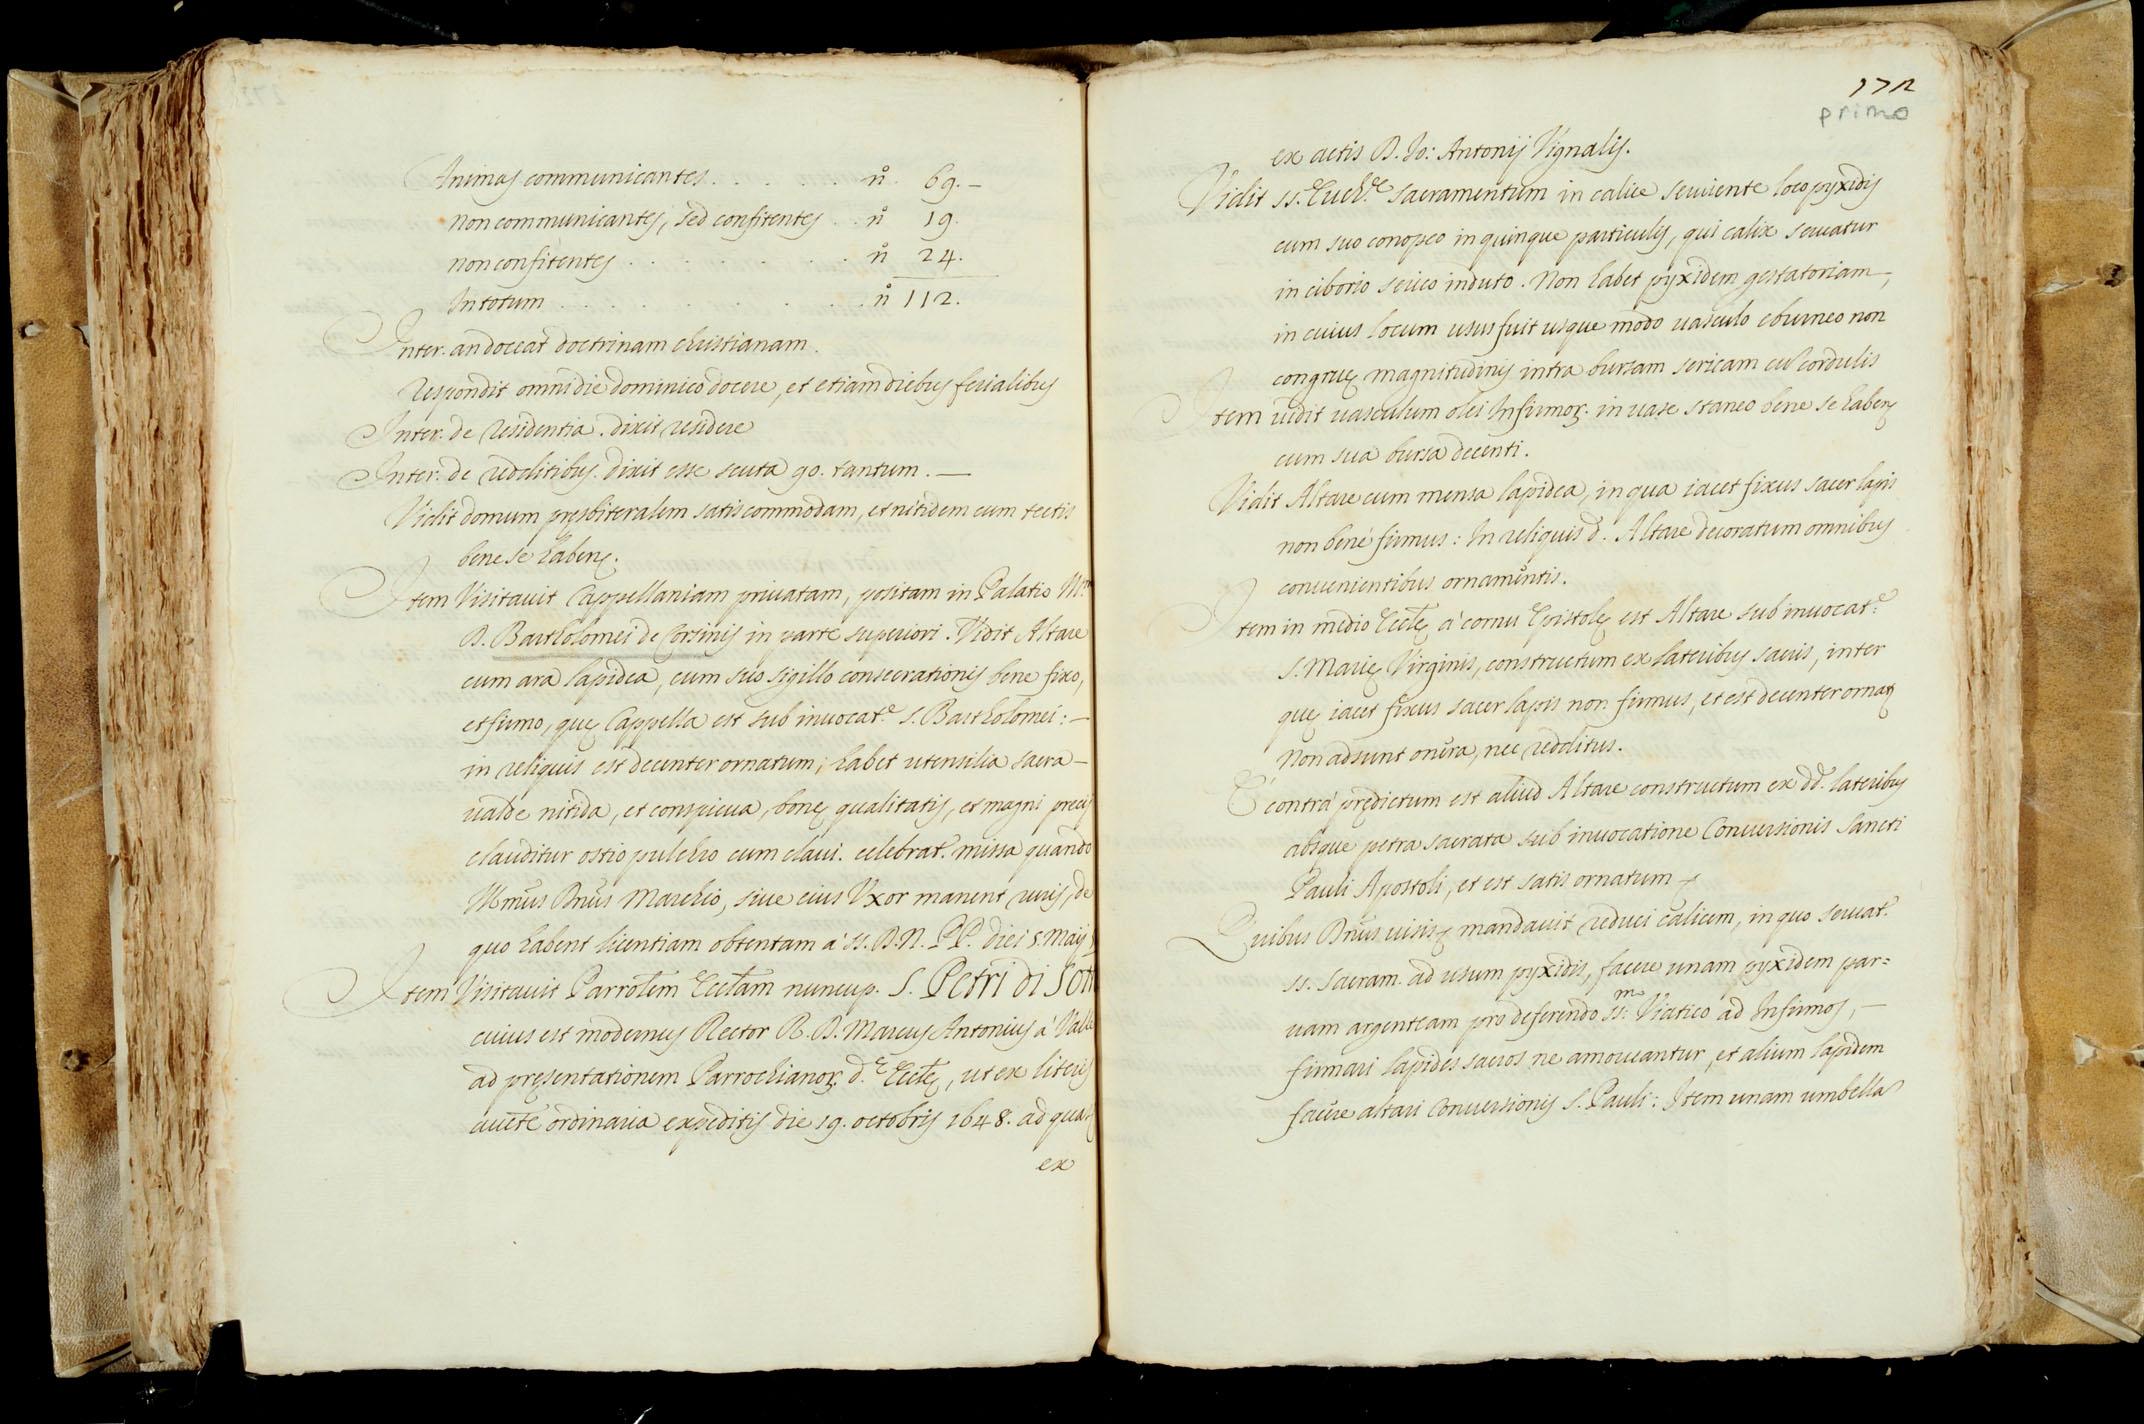 Animas communicantes . . . . . n.º 69.–
non communicantes, sed confitentes . . n.º 19.
non confitentes . . . . . . . . n.º 24.
In totum . . . . . . . . . n.º 112.
Inter. an doceat doctrinam christianam.
respondit omni die dominico docere, et etiam diebus ferialibus
Inter. de residentia. dixit residere
Inter. de redditibus. dixit esse scuta 90. tantum. —
Vidit domum pręsbiteralem satis commodam, et nitidem cum tectis
bene se habenę.
Item Visitavit Cappellaniam privatam, positam in Palatio M
D. Bartholomei de Corsinis in parte superiori. Vidit Altare
cum ara lapidea, cum suo sigillo consecrationis bene fixo,
et firmo, quę Cappella est sub invocat.e S. Bartholomei: –
in reliquis est decenter ornatum, habet utensilia sacra –
valde nitida, et conspicua, bonę qualitatis, et magni precij
clauditur ostio pulchro cum clavi. celebrat. missa quando
Ill.mus Dñus Marchio, sive eius Vxor manent ruris, de
quo habent licentiam obtentam à SS. D. N. PP. diei 5. Maij
Item Visitavit Parrolem Ecclam nuncup. S. Petri di Sott
cuius est modernus Rector R. D. Marcus Antonius à Valle
ad pręsentationem Parrochianor. d.e Ecclę, ut ex literis
aucte ordinaria expeditis die 19. octobris 1648. ad qua
ex
172
primo
ex actis D. Jo: Antonij Vignalis.
Vidit SS. Euch.e sacramentum in calice serviente loco pyxidis
cum suo conopeo in quinque particulis, qui calix servatur
in ciborio serico induto. Non habet pyxidem gestatoriam –,
in cuius locum usus fuit usque modo vasculo eburneo non
congruę magnitudinis intra bursam sericam cũ cordulis
Item vidit vasculum olei Infirmor. in vase staneo bene se habenę
cum sua bursa decenti.
Vidit Altare cum mensa lapidea, in qua iacet fixus sacer lapis
non bene firmus: In reliquis d. Altare decoratum omnibus
convenientibus ornamentis.
Item in medio Ecclę à cornu Epistolę est Altare sub invocat.e
S. Marię Virginis, constructum ex lateribus sacris, inter
quę iacet fixus sacer lapis non firmus, et est decenter ornatę
Non adsunt onera, nec redditus.
E contrà prędictum est aliud Altare constructum ex dd. lateribus
absque petra sacrata sub invocatione Conversionis Sancti
Pauli Apostoli, et est satis ornatum
Quibus Dñus visis, mandavit reduci calicem, in quo servat.
SS. Sacram. ad usum pyxidis, facere unam pyxidem par=
vam argenteam pro deferendo SS.mo Viatico ad Infirmos, –
firmari lapides sacros ne amoveantur, et alium lapidem
facere altari Conversionis S. Pauli: Item unam umbella